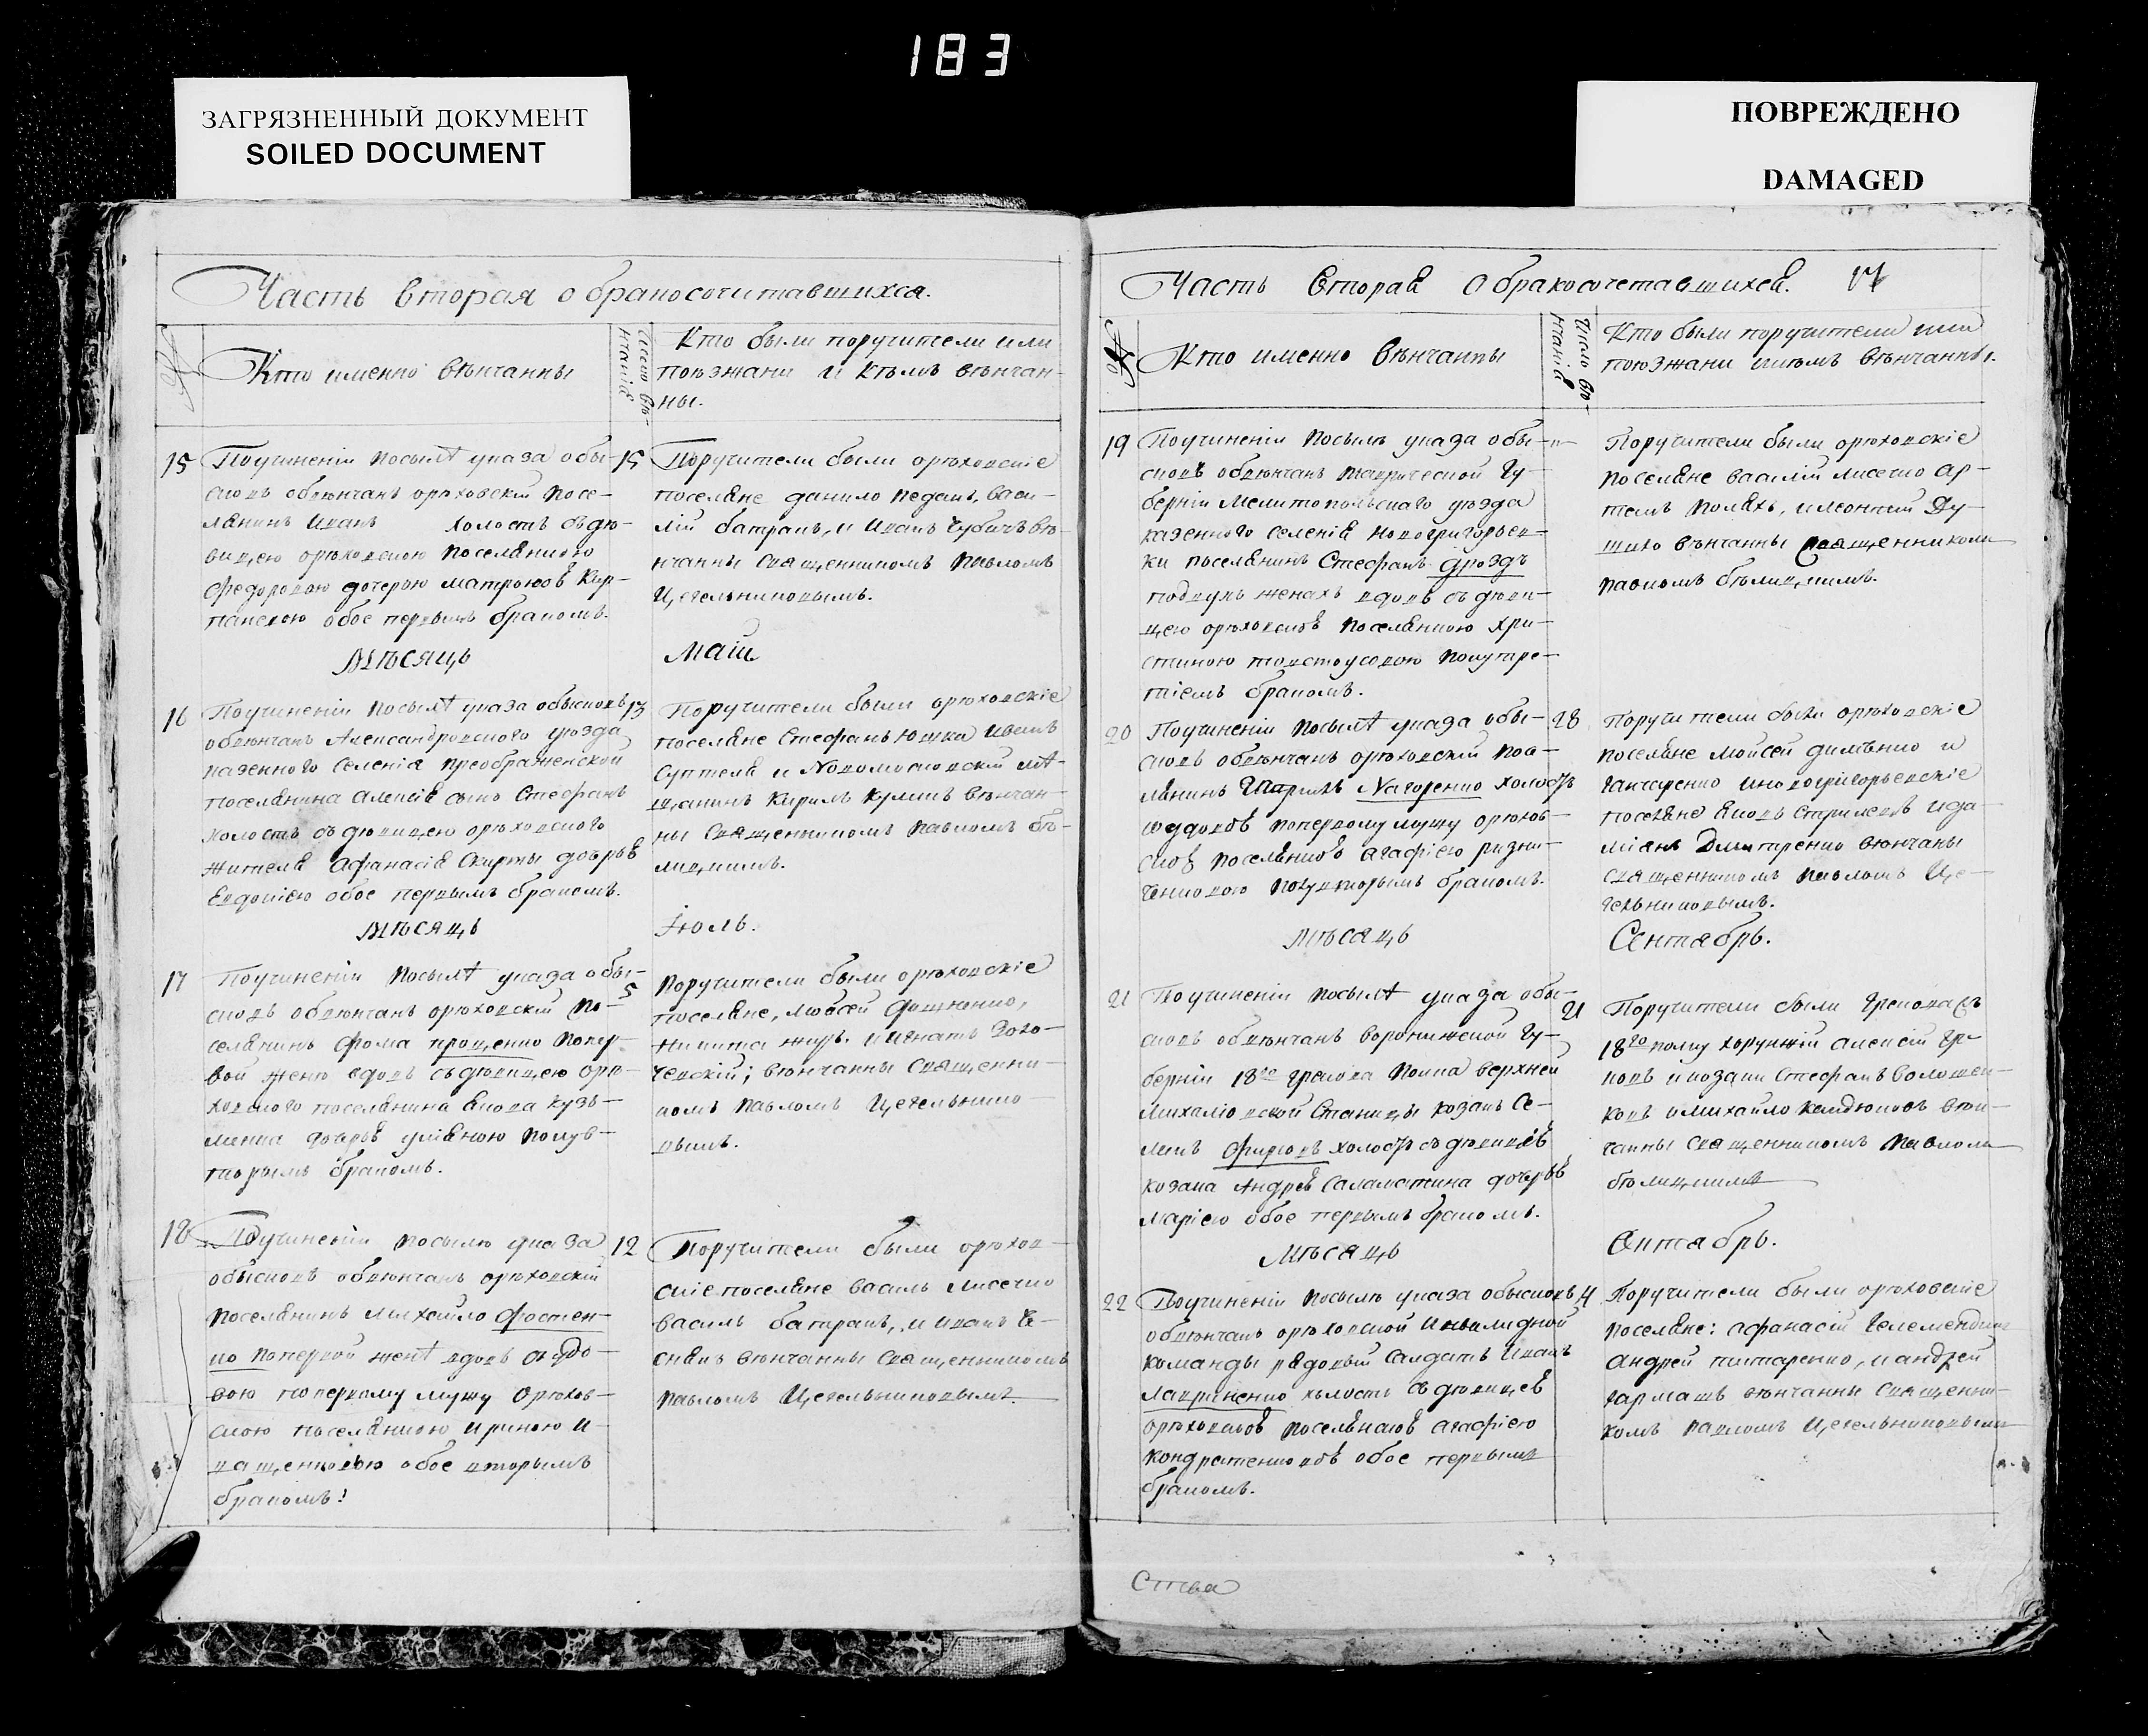 183
ЗАГРЯЗНЕННЫЙ ДОКУМЕНТ
SOILED DOCUMENT
ПОВРЕЖДЕНО
DAMAGED
Часть вторая о бракосочитавшихся.
№
Кто именно вѣнчанны
Число вѣ-
нчанія
Кто были поручители или
поѣзжани и кѣмъ вѣнчан-
ны.
15
Поучиненіи посылѣ указа обы-
сковъ обвѣнчанъ орѣховскій посе-
лянинъ Иванъ холостъ съ дѣ-
вицею орѣховскою поселянкою
Федоровою дочерью матроною Кир-
паневою обое первымъ бракомъ.
15
Поручители были орѣховскіе
поселяне данило педанъ, Васи-
лій батракъ, и Иванъ Чубичъ вѣ-
нчанны Священникомъ Павломъ
Цегельниковымъ.
Мѣсяцъ
Маій
16
Поучиненіи посылѣ указа обысковъ
обвѣнчанъ Александровского уѣзда
казенного селенія преображенской
поселянина алексія сынъ Стефанъ
холостъ съ дѣвицею орѣховского
жителя Афанасія Скирты дочерью
Евдокіею обое первымъ бракомъ.
13
Поручители были орѣховскіе
поселяне Стефанъ Юшка Иванъ
Суптеля и Новомосковскій мѣ-
щанинъ Кирилъ Кулишъ вѣнчан-
ны Священникомъ Павломъ бѣ-
лицкимъ.
Мѣсяцъ
Іюль.
17
Поучиненіи посылѣ указа обы-
сковъ обвѣнчанъ орѣховскій по-
селянинъ Фома проценко попер-
вой женѣ вдовъ съ дѣвицею орѣ-
ховского поселянина Якова Кузь-
менка дочерью уліяною полув-
торымъ бракомъ.
5
Поручители были орѣховскіе
поселяне, мойсей
Никита жиръ. и Игнатъ Золо-
чевскій; вѣнчанны Священни-
комъ Павломъ Цегельнико-
вымъ.
18
Поучиненіи посылѣ указа
обысковъ обвѣнчанъ орѣховскій
поселянинъ михайло Фостен-
ко попервой женѣ вдовъ съ вдо-
вою попервому мужу орѣхов-
скою поселянкою Ириною И-
ващенковою обое вторымъ
бракомъ!
12
Поручители были орѣхов-
скіе поселяне василь лисечко
василь батракъ, и Иванъ Че-
снакъ вѣнчанны Священникомъ
Павломъ Цегельниковымъ.
Часть Вторая О бракосочетавшихся. 17
№
Кто именно вѣнчанны
Число вѣ-
нчанія
Кто были поручители или
поѣзжани и кѣмъ вѣнчанны.
19
Поучиненіи посылѣ указа обы-
сковъ обвѣнчанъ таврической гу-
берніи Мелитопольскаго уѣзда
казенного селенія новогригорьев-
ки поселянинъ Стефанъ дроздъ
подвухъ женахъ вдовъ съ дѣви-
цею орѣховскою поселянкою Хри-
стиною товстоусовою полутре-
тіемъ бракомъ.
Поручители были орѣховскіе
поселяне василій лисечко ар-
темъ полякъ, и леонтій Ду-
шко вѣнчанны Священникомъ
павломъ бѣлицкимъ.
20
Поучиненіи посылѣ указа обы-
сковъ обвѣнчанъ орѣховскій посе-
лянинъ Гаврилъ Нагоренко холостъ
со вдовою попервому мужу орѣхов-
скою поселянкою агафіею резни-
ченковою полувторымъ бракомъ.
28
Поручители были орѣховскіе
поселяне мойсей и
ганчаренко и новогригорьевскіе
поселяне Яковъ Стрижевъ и да-
міянъ Дмитренко вѣнчаны
священникомъ Павломъ Це-
гельниковымъ.
Мѣсяцъ
Сентябрь.
21
Поучиненіи посылѣ указа обы-
сковъ обвѣнчанъ воронижской гу-
берніи 18го грекова полка верхней
михаліовской Станицы козакъ Се-
менъ Фирсовъ холостъ съ дѣвицею
козака Андрея Саламатина дочерью
маріею обое первымъ бракомъ.
21
Поручители были грековаго
18го полку хорунжій Алексій гре-
ковъ и козаки Стефанъ Волошен-
ковъ и михайло вѣн-
чанны Священникомъ Павломъ
бѣлицкимъ
Мѣсяцъ
Октябрь.
22
Поучиненіи посылѣ указа обысковъ
обвѣнчанъ орѣховской Инвалидной
команды рядовый Салдатъ Иванъ
Лавриненко холостъ съ дѣвицею
орѣховскою поселянкою агафіею
Кондратенковою обое первымъ
бракомъ.
4
Поручители были орѣховскіе
поселяне: афанасій
андрей питаренко, и андрей
гармашъ вѣнчанны Священни-
комъ Павломъ Цегельниковымъ
Ства